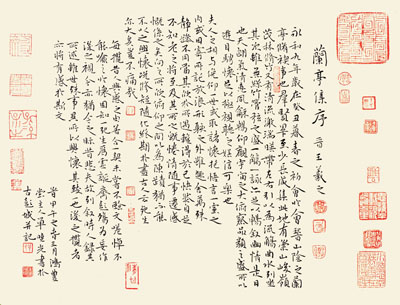 蘭亭集序 晉王羲之
永和九年歲在癸丑暮春之初會於會稽山陰之蘭
亭脩禊事也群賢畢至少長咸集此地有崇山峻嶺
茂林脩竹又有清流激湍映帶左右引以為流觴曲水列坐
其次雖無絲竹管弦之盛一觴一詠亦足以暢敘幽情是日
也天朗氣清惠風和暢仰觀宇宙之大俯察品類之盛所以
遊目騁懷足以極視聽之娛信可樂也
夫人之相與俯仰一世或取諸懷抱悟言一室之
內或因寄所託放浪形骸之外雖趣舍萬殊
靜躁不同當其欣於所遇暫得於己快然自足
不知老之將至及其所之既惓情隨事遷感
慨係之矣向之所欣俛仰之間以為陳跡猶不能
不以之興懷況脩短隨化終期於盡古人云死生
亦大矣豈不痛哉
每攬昔人興感之由若合一契未嘗不臨文嗟悼不
能喻之於懷固知一死生為虛誕齊彭殤為妄作
後之視今亦猶今之視昔悲夫故列敘時人錄其
所述雖世殊事異所以興懷其致一也後之攬者
亦將有感於斯文
堂主人
古彭城並記